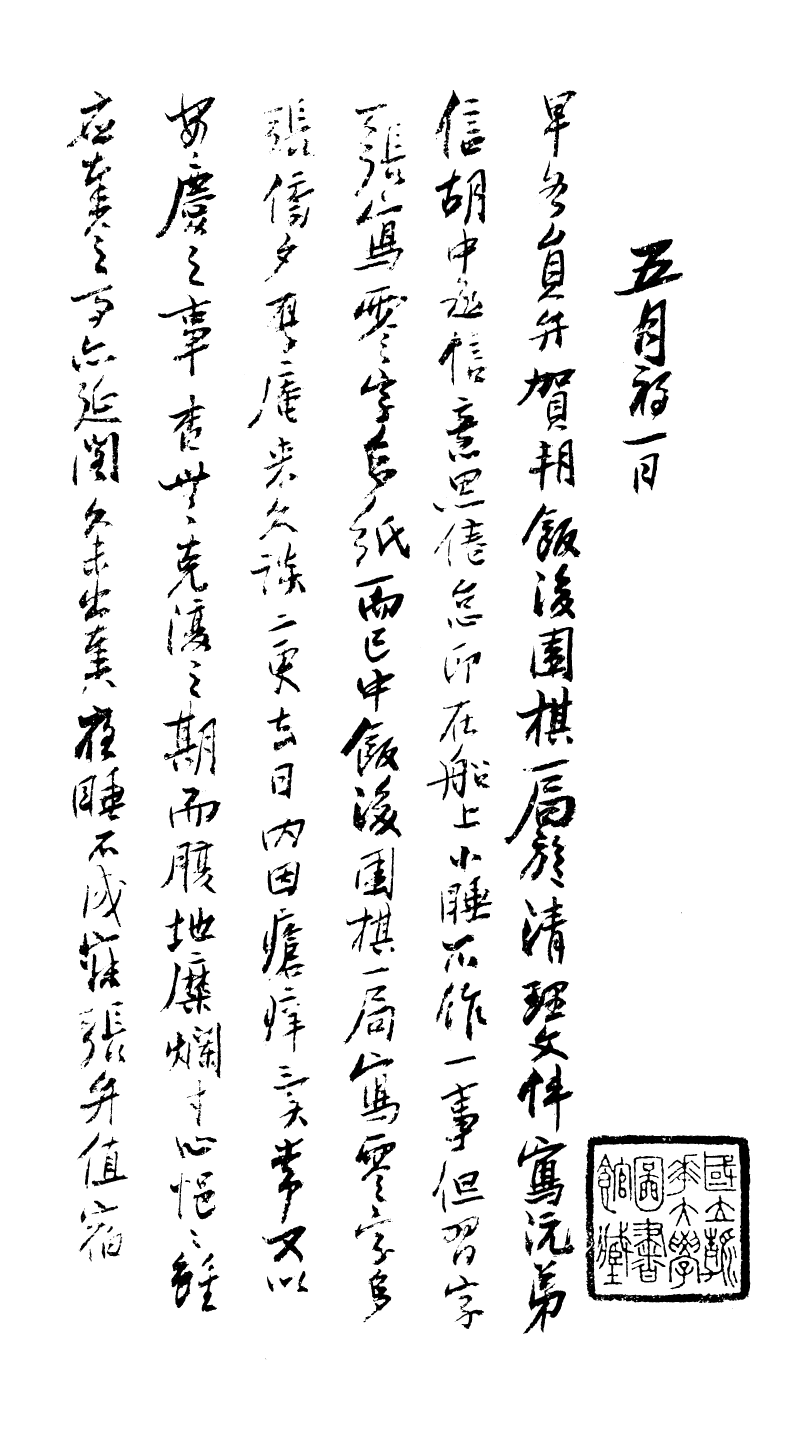 五月初一日
早各員弁賀朔飯後圍棋一局旋清理文件寫沅弟
信胡中丞信意思倦怠即在船上小睡不作一事但習字
一張寫零字多紙而已中飯後圍棋一局寫零字多
張傍夕至庵來久談二更去日內因瘡癢異常又以
安慶之事杳無克復之期而腹地糜爛寸心悒悒雖
應奏之事亦延閣久未出奏夜睡不成寐張弁值宿
國立清華大學圖書館藏